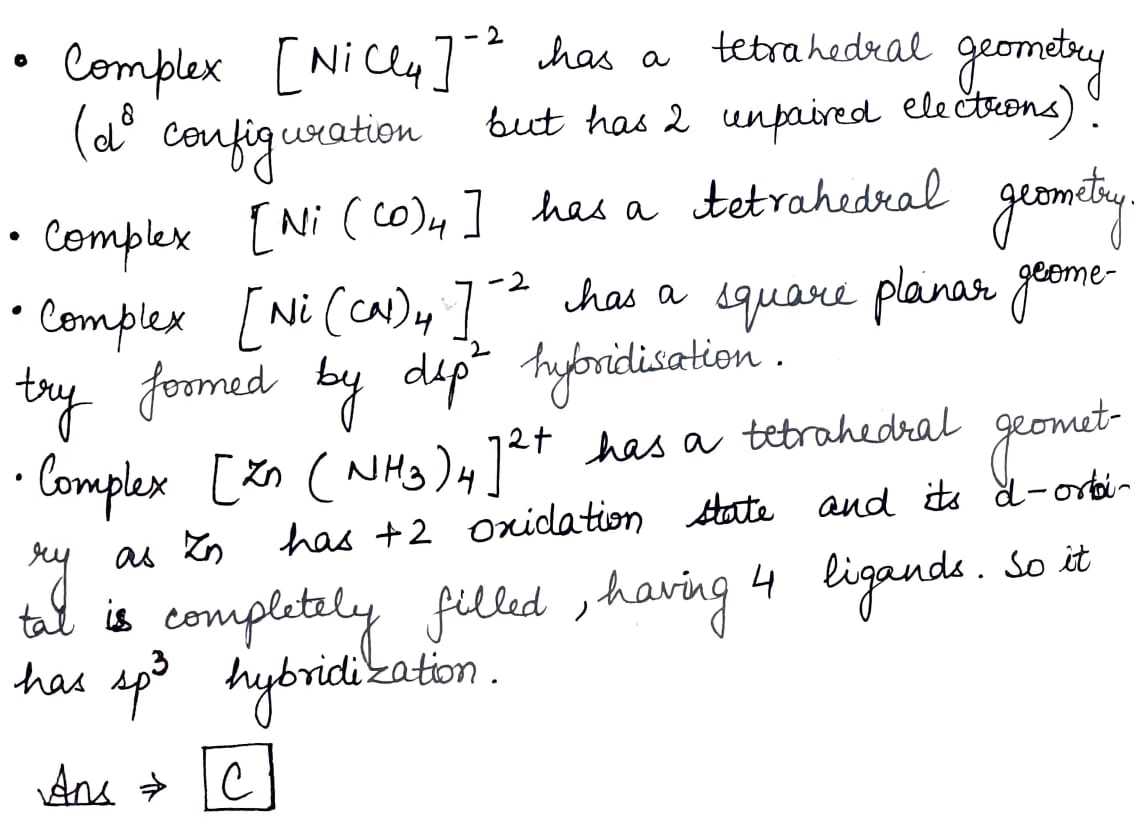 • Complex [NiCl4]⁻² has a tetrahedral geometry
(d⁸ configuration but has 2 unpaired electrons).
• Complex [Ni(CO)4] has a tetrahedral geometry.
• Complex [Ni(CN)4]⁻² has a square planar geome-
try formed by dsp² hybridisation.
• Complex [Zn(NH3)4]²⁺ has a tetrahedral geomet-
ry as Zn has +2 oxidation state and its d-orbi-
tal is completely filled, having 4 ligands. So it
has sp³ hybridization.
Ans ⇒ C